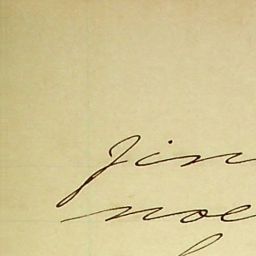 Jin
noe